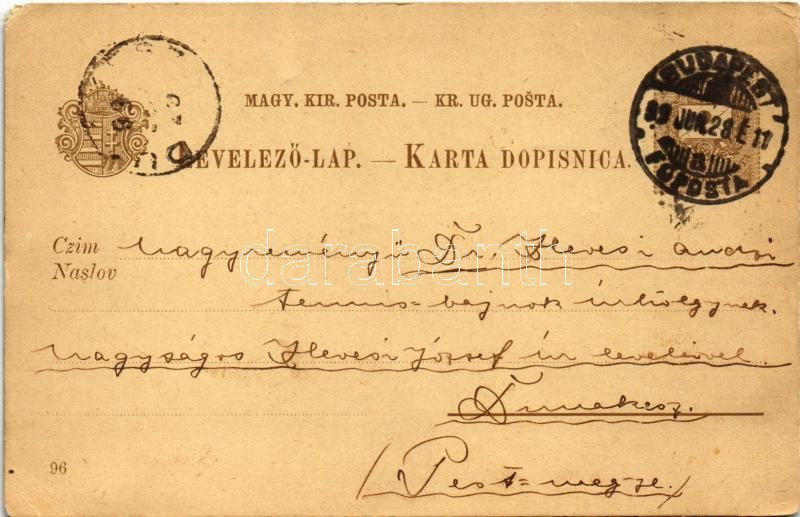 MAGY. KIR. POSTA. — KR. UG. POŠTA.
LEVELEZŐ-LAP. — KARTA DOPISNICA.
BUDAPEST
99 JUN. 28 E 11
FŐPOSTA
Czim
Naslov
Nagyreményű Dr. Hevesi
tennis=bajnok úrhölgynek.
Nagyságos Hevesi József úr levelével.
Dunakesz.
(Pest=megye.)
96
darabanth